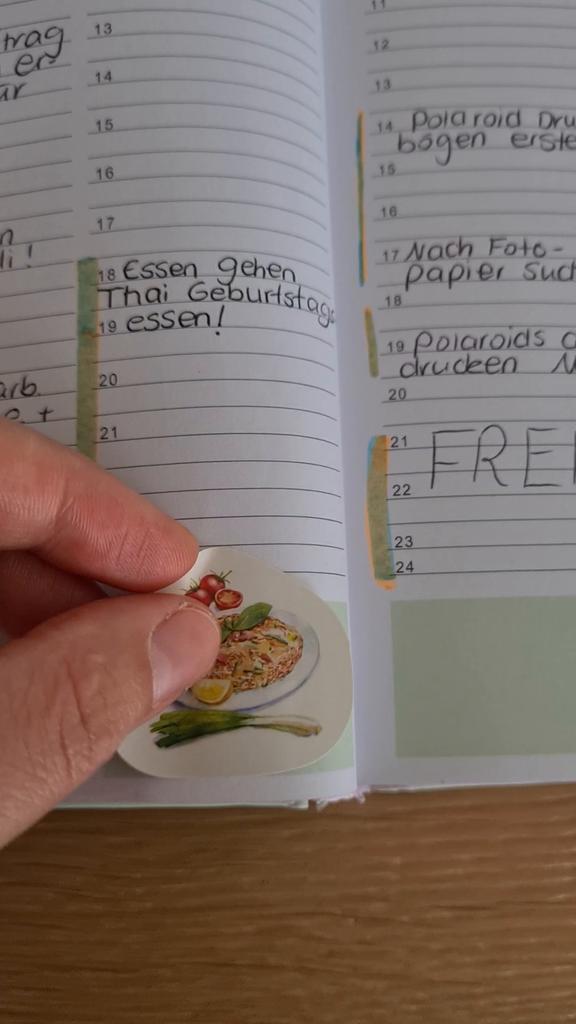 trag
er
är
n
li!
arb.
e +
13
14
15
16
17
18 Essen gehen
Thai Geburtstags
19 essen!
20
21
11
12
13
14 Polaroid Dru
bögen erste
15
16
17 Nach Foto-
papier such
18
19 Polaroids
drucken
20
21 FREI
22
23
24